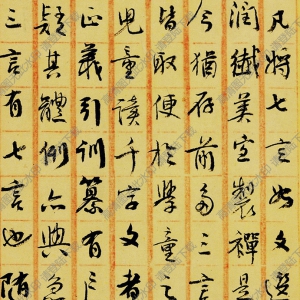 凡將七言如文選
潤纖美宜製禪是
今猶存前多三言
皆取便於學童之
兒童讀千字文者
正義引訓纂有户
疑其體例亦與急
三言有七言也隨